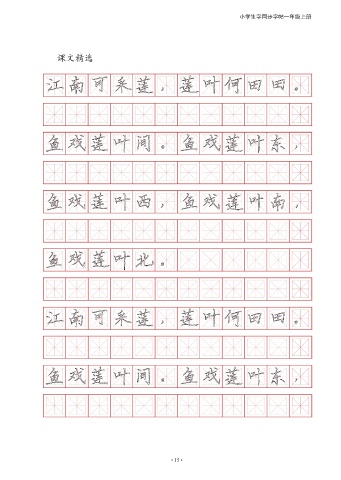 小学生字同步字帖一年级上册
课文精选
江南可采莲，莲叶何田田。
鱼戏莲叶间。鱼戏莲叶东，
鱼戏莲叶西，鱼戏莲叶南，
鱼戏莲叶北。
江南可采莲，莲叶何田田。
鱼戏莲叶间。鱼戏莲叶东，
· 15 ·